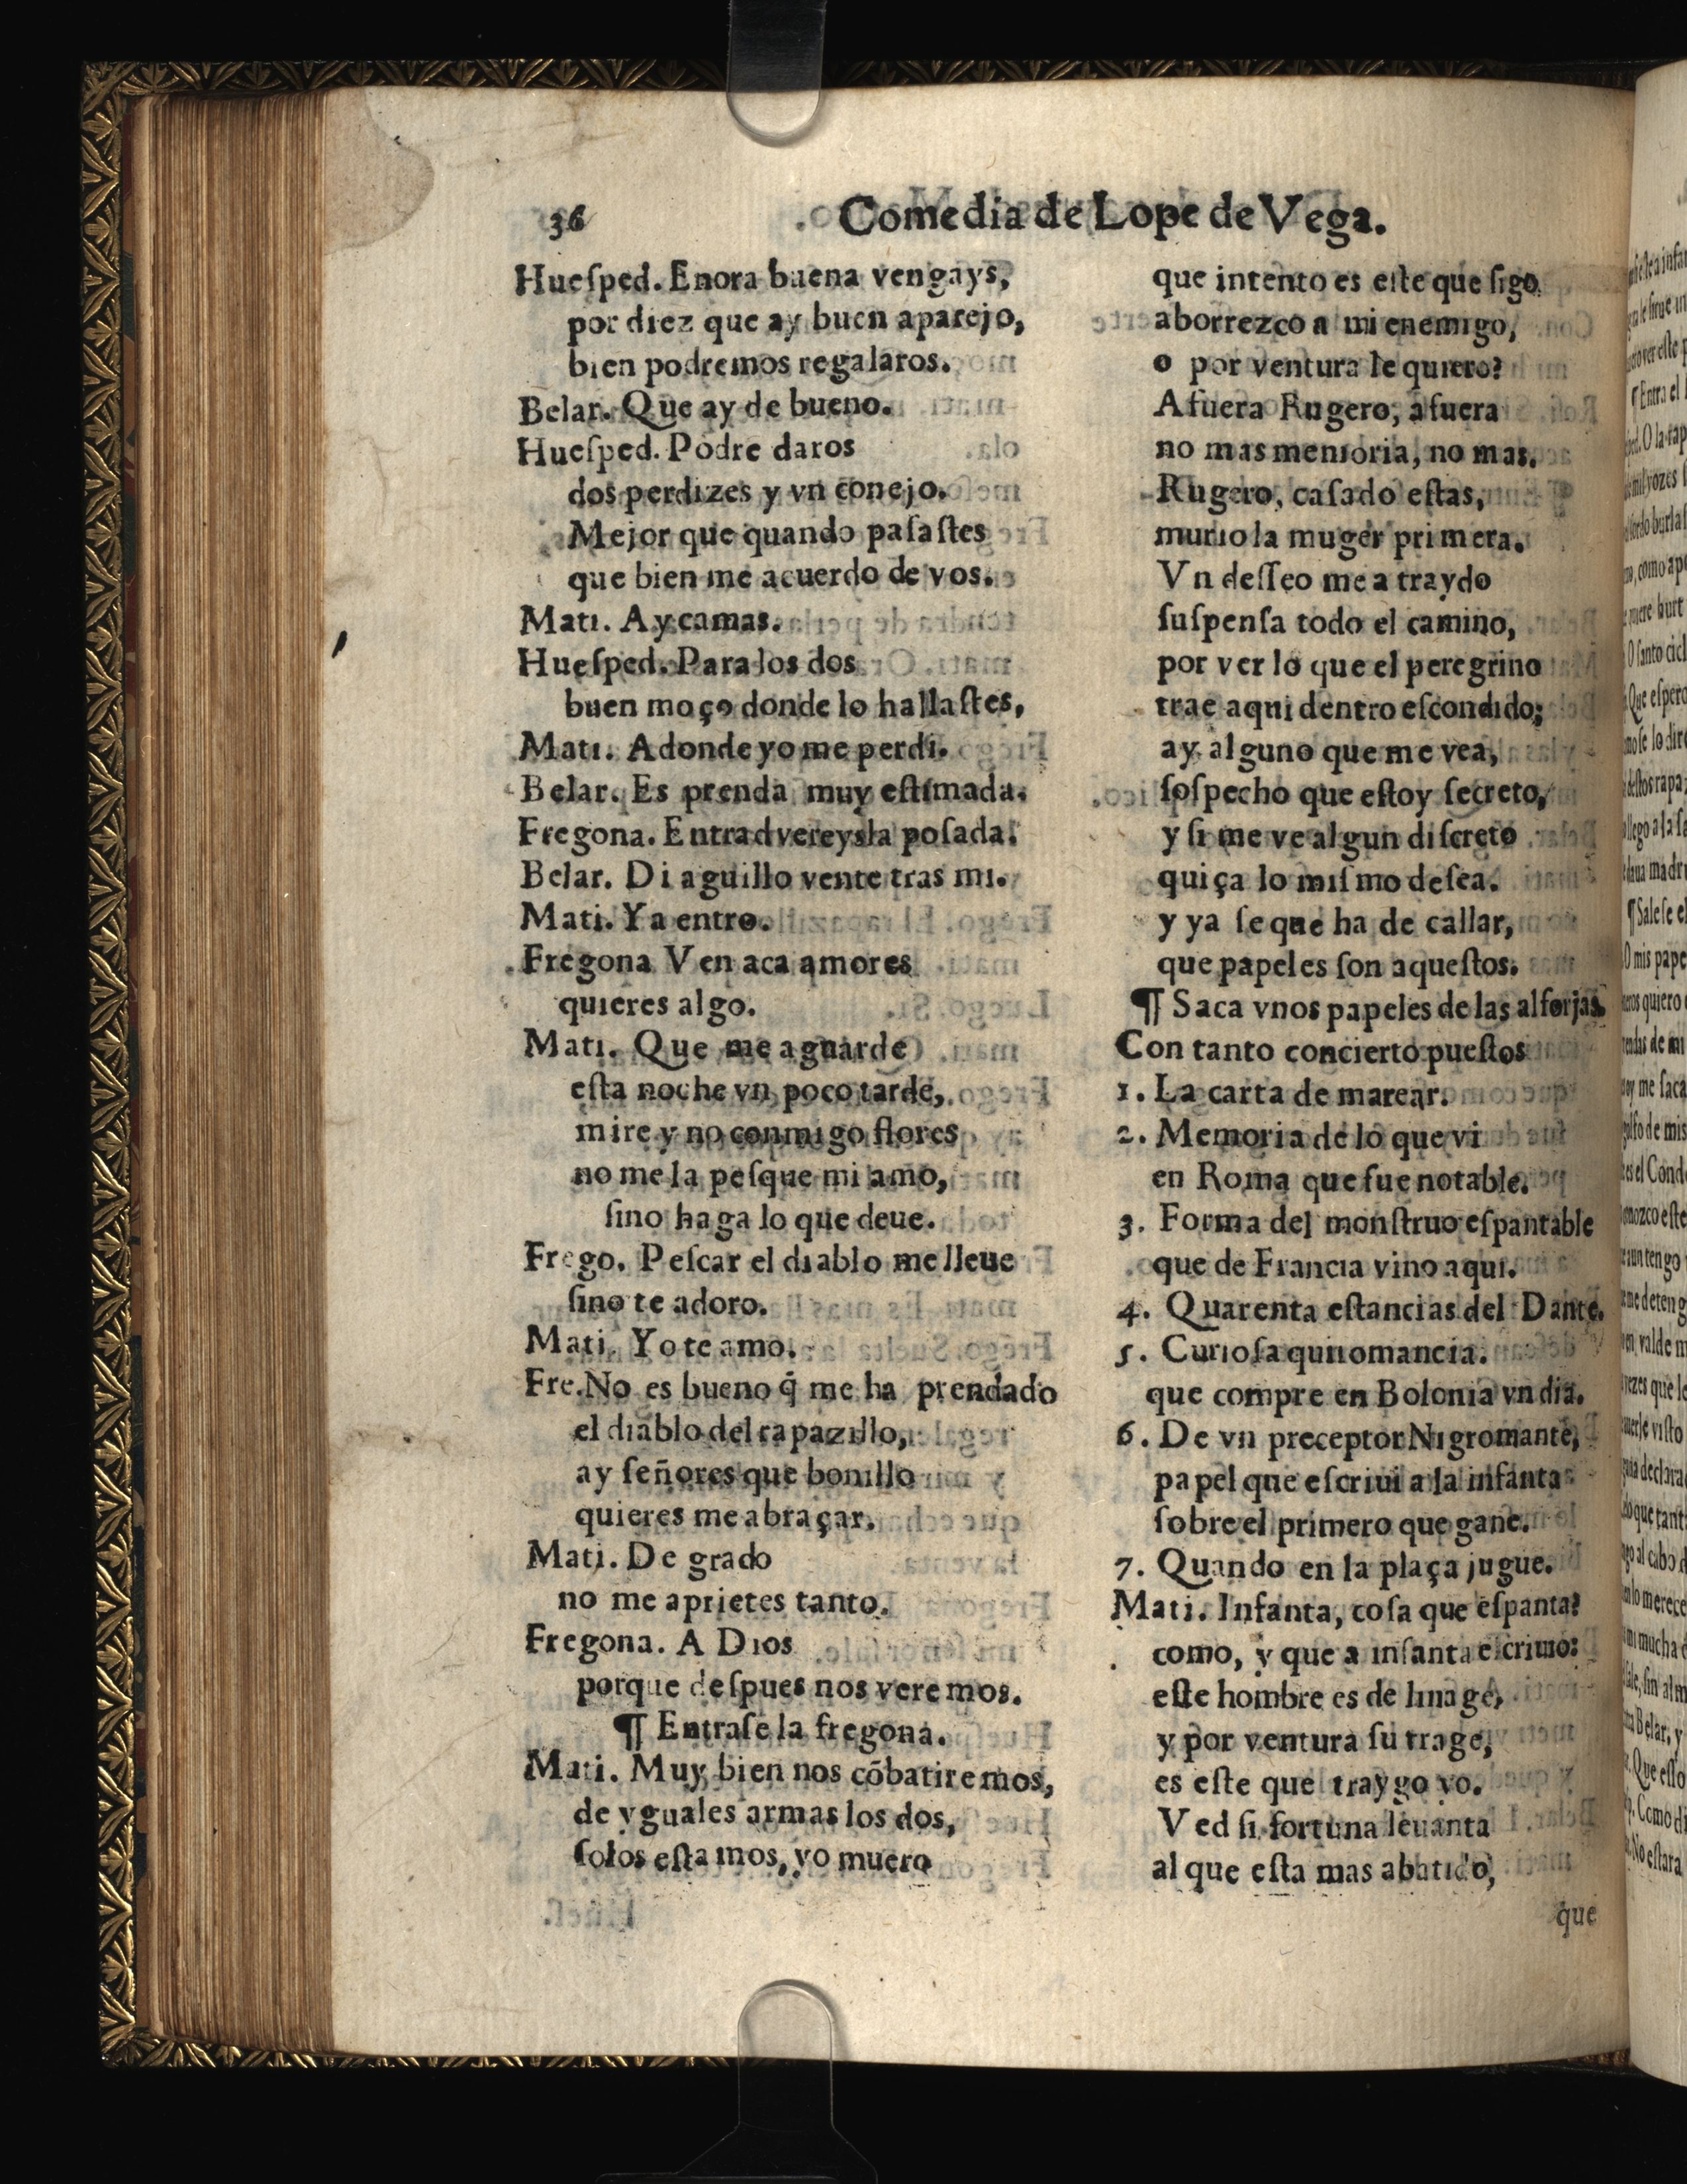 36
Comedia de Lope de Vega.
Hueſped. Enora buena vengays,
por diez que ay buen aparejo,
bien podremos regalaros.
Belar. Que ay de bueno.
Hueſped. Podre daros
dos perdizes y vn conejo.
Mejor que quando paſaſtes
que bien me acuerdo de vos.
Mati. Ay camas.
Hueſped. Para los dos
buen moço donde lo hallaſtes,
Mati. Adonde yo me perdi.
Belar. Es prenda muy eſtimada.
Fregona. Entrad vereys la poſada.
Belar. Diaguillo vente tras mi.
Mati. Ya entro.
Fregona Ven aca amores
quieres algo.
Mati. Que me aguarde
eſta noche vn poco tarde,
mire y no conmigo flores
no me la peſque mi amo,
ſino haga lo que deue.
Frego. Peſcar el diablo me lleue
ſino te adoro.
Mati. Yo te amo.
Fre. No es bueno q̃ me ha prendado
el diablo del rapazillo,
ay ſeñores que bonillo
quieres me abraçar.
Mati. De grado
no me aprietes tanto.
Fregona. A Dios
porque deſpues nos veremos.
¶ Entraſe la fregona.
Mati. Muy bien nos cõbatiremos,
de yguales armas los dos,
ſolos eſtamos, yo muero
que intento es eſte que ſigo
aborrezco a mi enemigo,
o por ventura le quiero?
Afuera Rugero, afuera
no mas memoria, no mas.
Rugero, caſado eſtas,
murio la muger primera.
Vn deſſeo me a traydo
ſuſpenſa todo el camino,
por ver lo que el peregrino
trae aqui dentro eſcondido;
ay alguno que me vea,
ſoſpecho que eſtoy ſecreto,
y ſi me ve algun diſcreto
quiça lo miſmo deſea.
y ya ſe que ha de callar,
que papeles ſon aqueſtos.
¶ Saca vnos papeles de las alforjas.
Con tanto concierto pueſtos
1. La carta de marear.
2. Memoria de lo que vi
en Roma que fue notable.
3. Forma del monſtruo eſpantable
que de Francia vino aqui.
4. Quarenta eſtancias del Dante.
5. Curioſa quiromancia.
que compre en Bolonia vn dia.
6. De vn preceptor Nigromante,
papel que eſcriui a la infanta
ſobre el primero que gane.
7. Quando en la plaça jugue.
Mati. Infanta, coſa que eſpanta?
como, y que a infanta eſcriuio:
eſte hombre es de linage,
y por ventura ſu trage,
es eſte que traygo yo.
Ved ſi fortuna leuanta
al que eſta mas abatido,
que